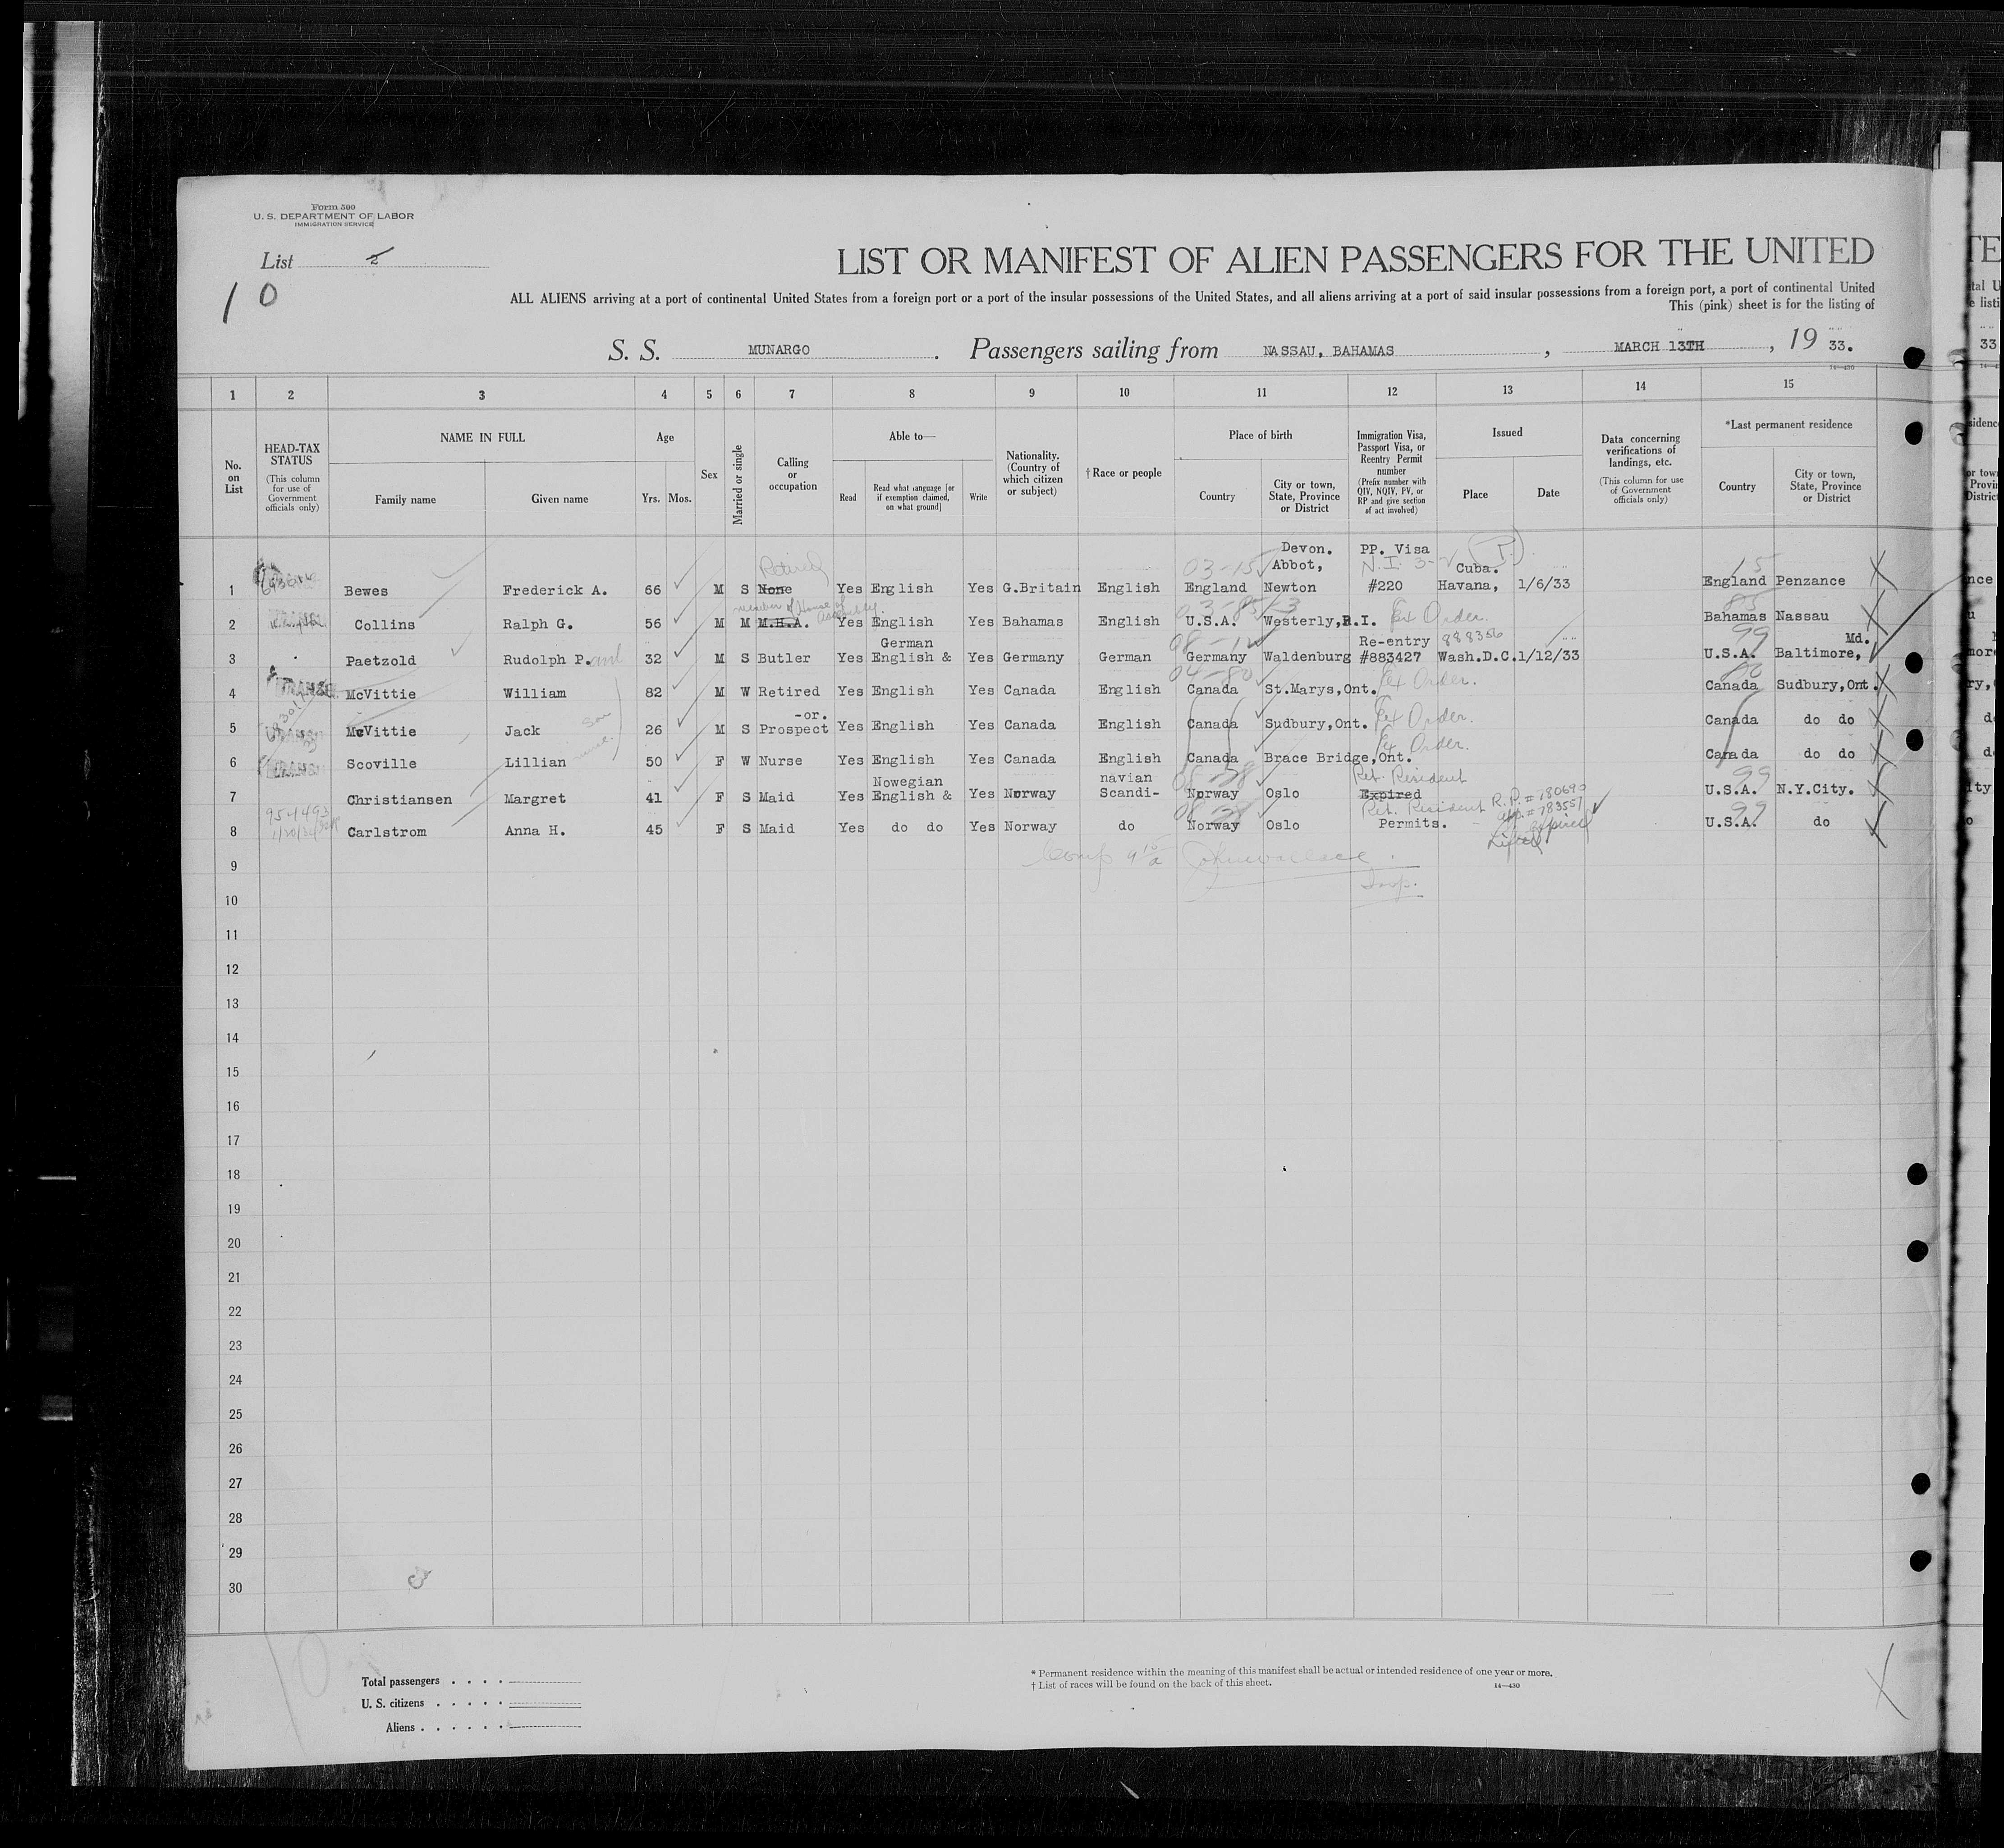 Form 500
U. S. DEPARTMENT OF LABOR
IMMIGRATION SERVICE
List 2
10
LIST OR MANIFEST OF ALIEN PASSENGERS FOR THE UNITED
ALL ALIENS arriving at a port of continental United States from a foreign port or a port of the insular possessions of the United States, and all aliens arriving at a port of said insular possessions from a foreign port, a port of continental United
This (pink) sheet is for the listing of
S. S. MUNARGO. Passengers sailing from NASSAU, BAHAMAS, MARCH 13TH, 19 33.
14—430
1 2 3 4 5 6 7 8 9 10 11 12 13 14 15
No. on List
HEAD-TAX STATUS
(This column for use of Government officials only)
NAME IN FULL
Family name Given name
Age
Yrs. Mos.
Sex
Married or single
Calling or occupation
Able to—
Read
Read what language [or if exemption claimed, on what ground]
Write
Nationality. (Country of which citizen or subject)
†Race or people
Place of birth
Country
City or town, State, Province or District
Immigration Visa, Passport Visa, or Reentry Permit number
(Prefix number with QIV, NQIV, PV, or RP and give section of act involved)
Issued
Place Date
Data concerning verifications of landings, etc.
(This column for use of Government officials only)
*Last permanent residence
Country
City or town, State, Province or District
Retired 03-15 Devon. Abbot, PP. Visa N.I. 3-2 Cuba. 15
1 Bewes Frederick A. 66 M S None Yes English Yes G.Britain English England Newton #220 Havana, 1/6/33 England Penzance
member of House of Assembly. 85
2 Collins Ralph G. 56 M M M.H.A. Yes English Yes Bahamas English U.S.A. Westerly,R.I. Ex Order. Bahamas Nassau
German Re-entry 888356 99 Md.
3 Paetzold Rudolph P. 32 M S Butler Yes English & Yes Germany German Germany Waldenburg #883427 Wash.D.C. 1/12/33 U.S.A. Baltimore,
04-80
4 McVittie William 82 M W Retired Yes English Yes Canada English Canada St.Marys,Ont. Ex Order. Canada Sudbury,Ont.
son -or.
5 McVittie Jack 26 M S Prospect Yes English Yes Canada English Canada Sudbury,Ont. Ex Order. Canada do do
nurse. Ex Order.
6 Scoville Lillian 50 F W Nurse Yes English Yes Canada English Canada Brace Bridge,Ont. Canada do do
Nowegian navian Ret. Resident 99
7 Christiansen Margret 41 F S Maid Yes English & Yes Norway Scandi- Norway Oslo Expired U.S.A. N.Y.City.
954493 Ret. Resident R.P.# 780690 783551 99
8 Carlstrom Anna H. 45 F S Maid Yes do do Yes Norway do Norway Oslo Permits. expired Lifted U.S.A. do
9
Insp.
10
11
12
13
14
15
16
17
18
19
20
21
22
23
24
25
26
27
28
29
30
Total passengers
U. S. citizens
Aliens
* Permanent residence within the meaning of this manifest shall be actual or intended residence of one year or more.
† List of races will be found on the back of this sheet.
14—430